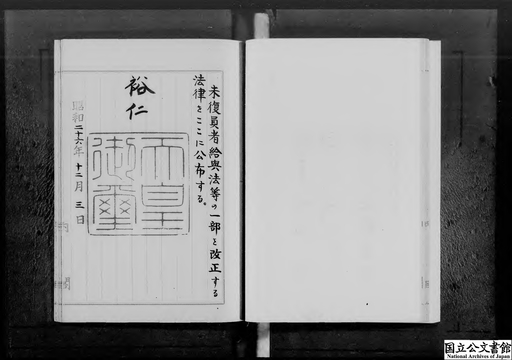 未復員者給與法等の一部を改正する
法律をここに公布する。
裕仁
天皇
御璽
昭和二十六年十二月三日
国立公文書館
National Archives of Japan